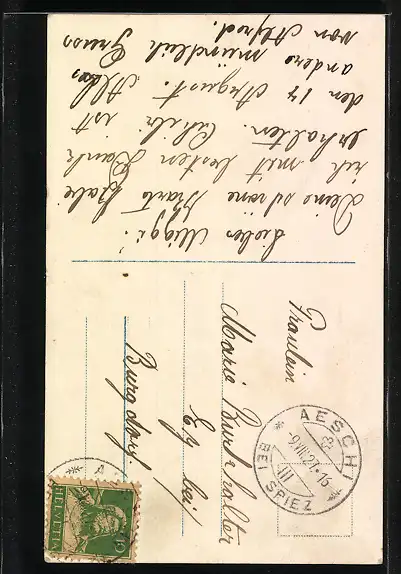 Liebes Miggi!
Deine schöne Karte habe
ich mit besten Dank
erhalten. Chilbi ist
den 14 August. Alles
andere mündlich Gruss
von Alfred.
Fräulein
Marie Burkhalter
Burgdorf.
AESCHI
BEI SPIEZ
9.VIII.21.15
III
HELVETIA
10